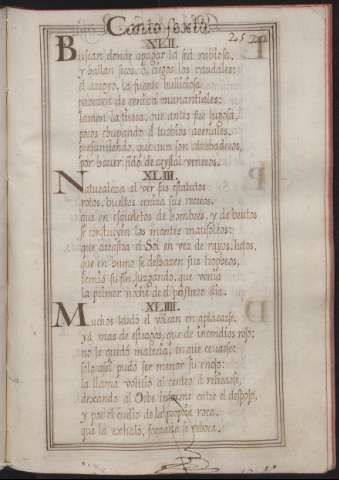 Canto sexto.
252
XLII.
Buscan donde apagar la sed rabiosa,
y hallan secos, o ciegos los raudales:
el arroyo, la fuente bulliciosa
de ceniza manantiales:
lamen la tierra, que antes fue jugosa,
pocos chupando turbios arenales,
presumiendo, que aun son alabadores,
por haver sido de crystal veneros.
XLIII.
Naturaleza al ver sus estatutos
rotos, bueltos ceniza sus recreos,
que en esqueletos de hombres, y de brutos
se constituyen los montes mausoleos:
que arrastra el Sol en vez de rayos, lutos,
que en humo se deshazen sus tropheos,
temiò su fin, juzgando, que veria
la primer noche de el postrero dia.
XLIIII.
Muchos tardò el volcan en aplacarse,
ya mas de estragos, que de incendios rojo;
no le quedò materia, en que cevarse:
solo assi pudo ser menor su enojo:
la llama volviò al centro à retirarse,
dexando al Orbe informe entre el despojo,
y por el cuello de la propria roca,
que la exhalò,